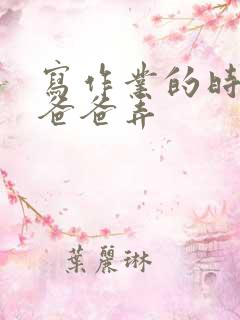 寫作業的時
爸爸弄
葉麗琳